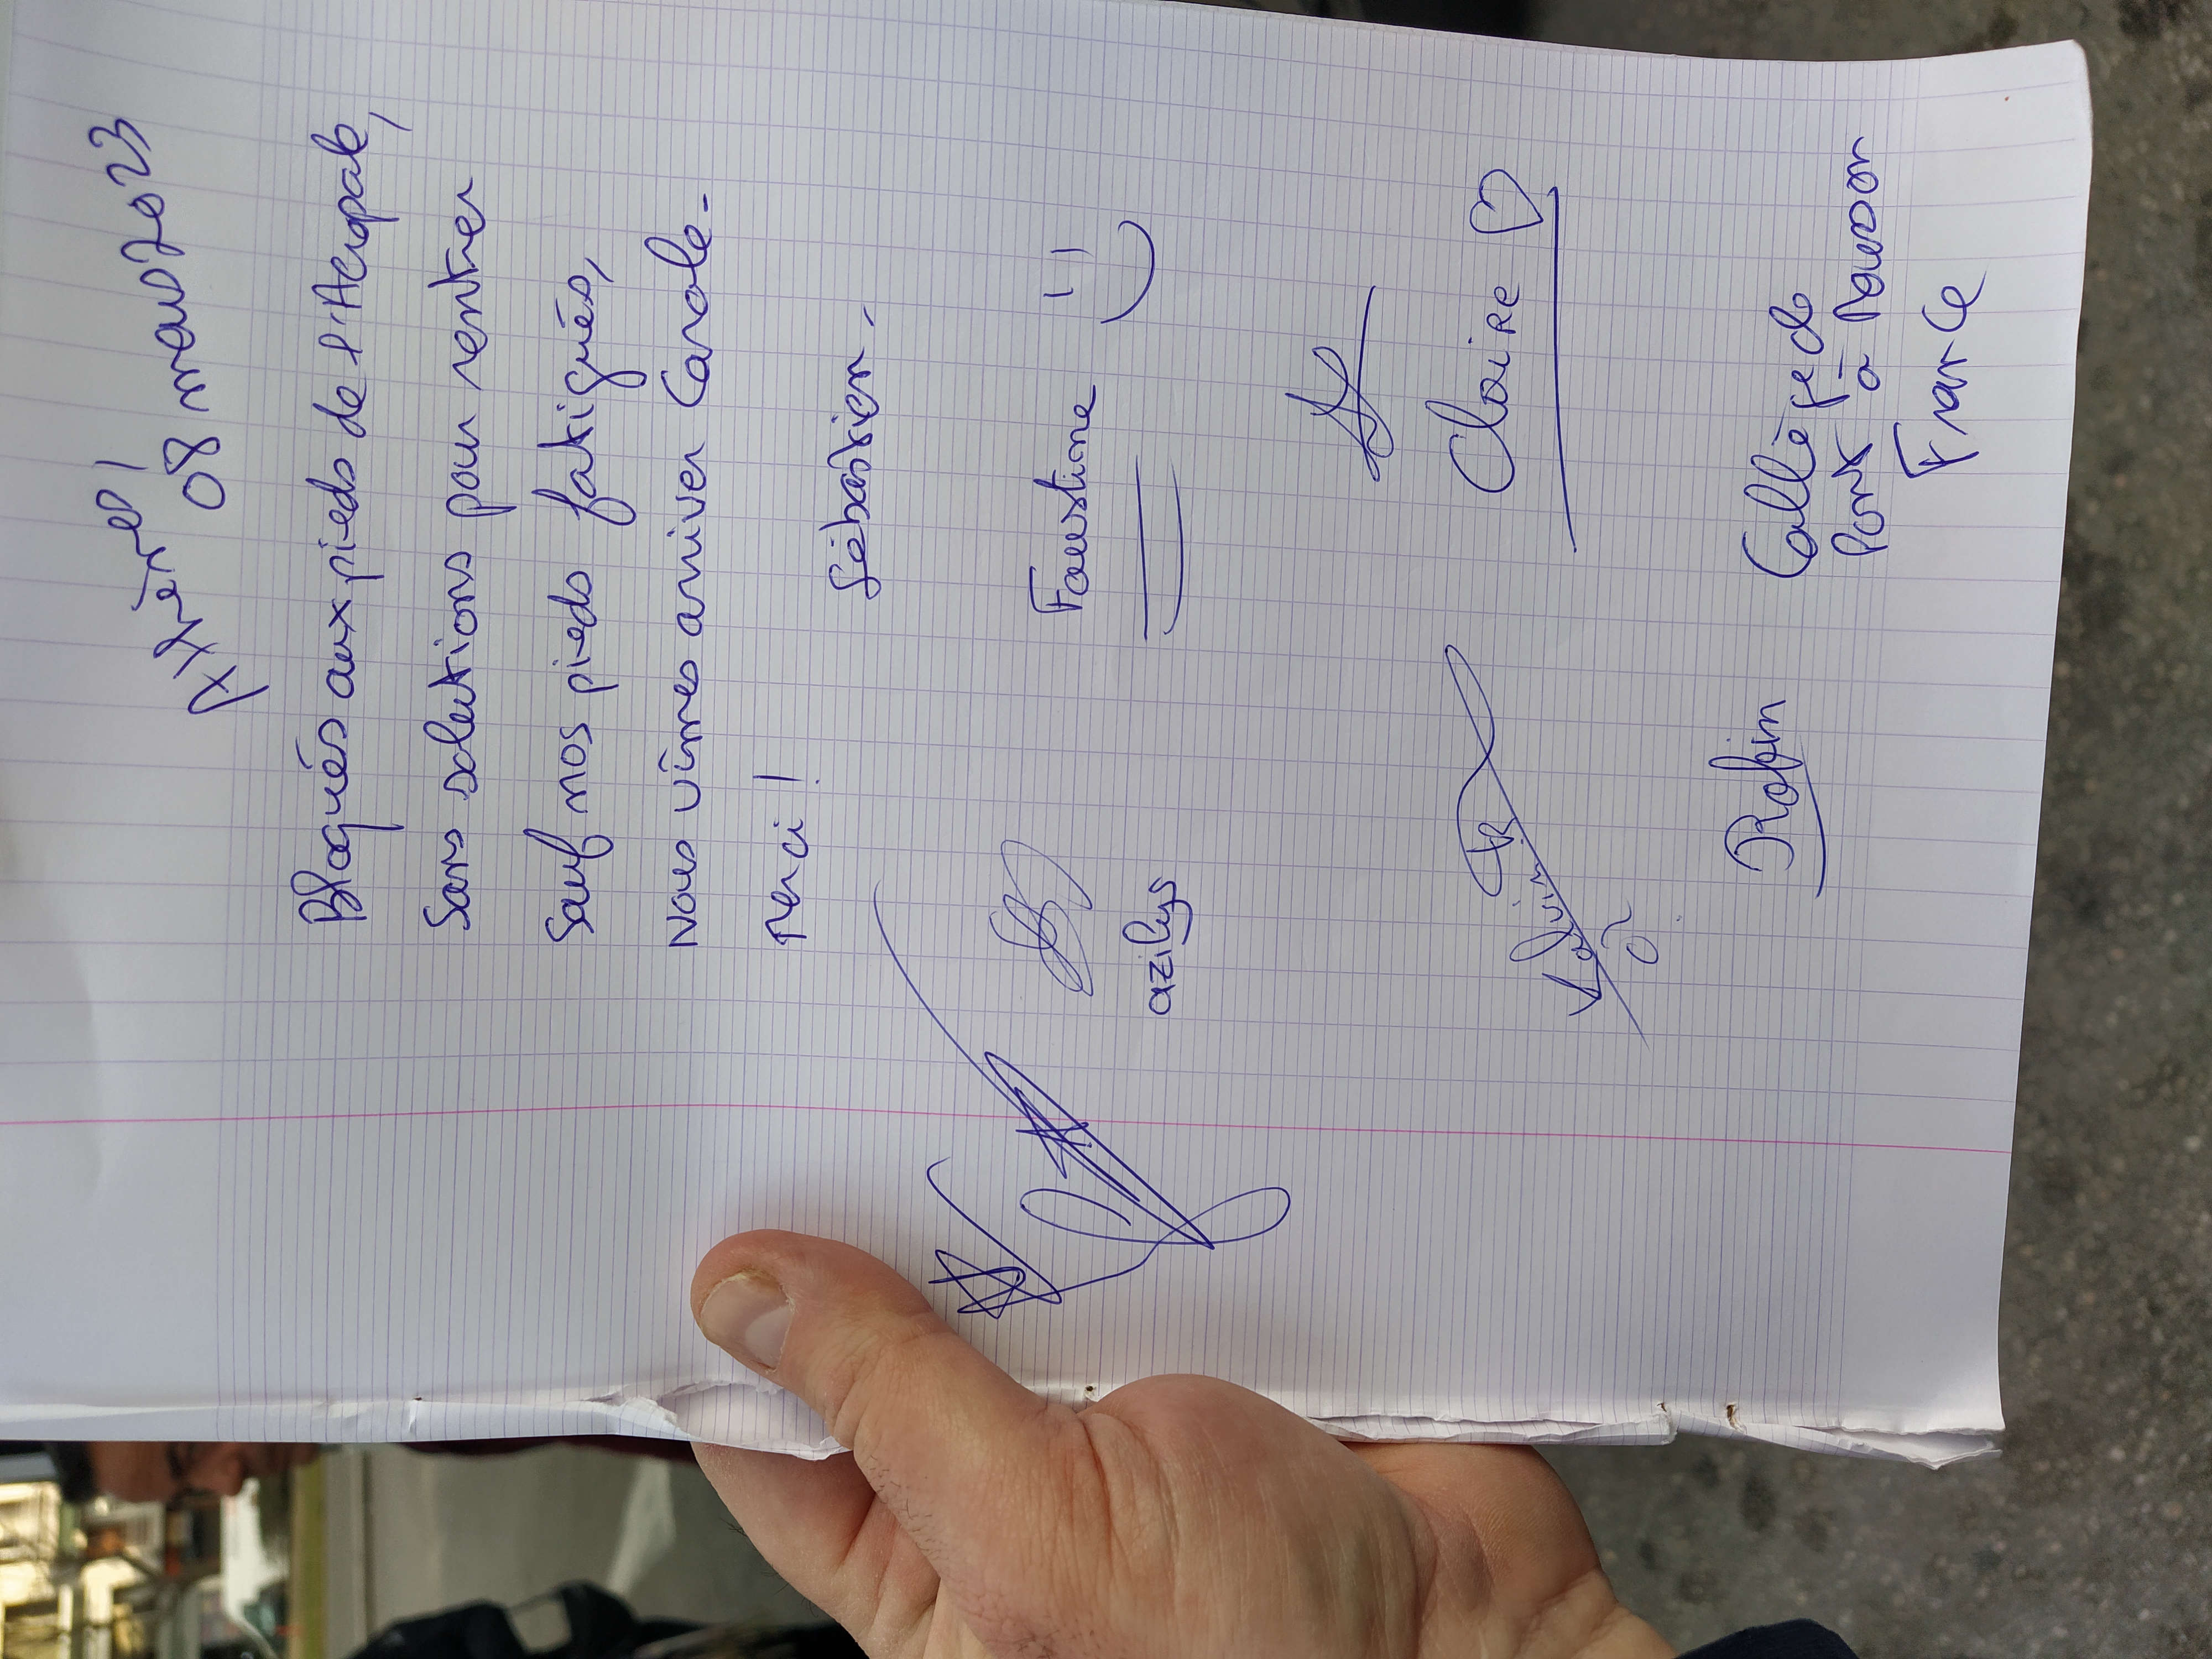 Athènes,
08 mars 2023
Bloqués aux pieds de l'Acropole,
Sans solutions pour rentrer
Sauf nos pieds fatigués,
Nous vîmes arriver Carole.
Merci !
Sébastien.
Faustine
azilys
Claire
Robin
Collège de
Pont à Mousson
France